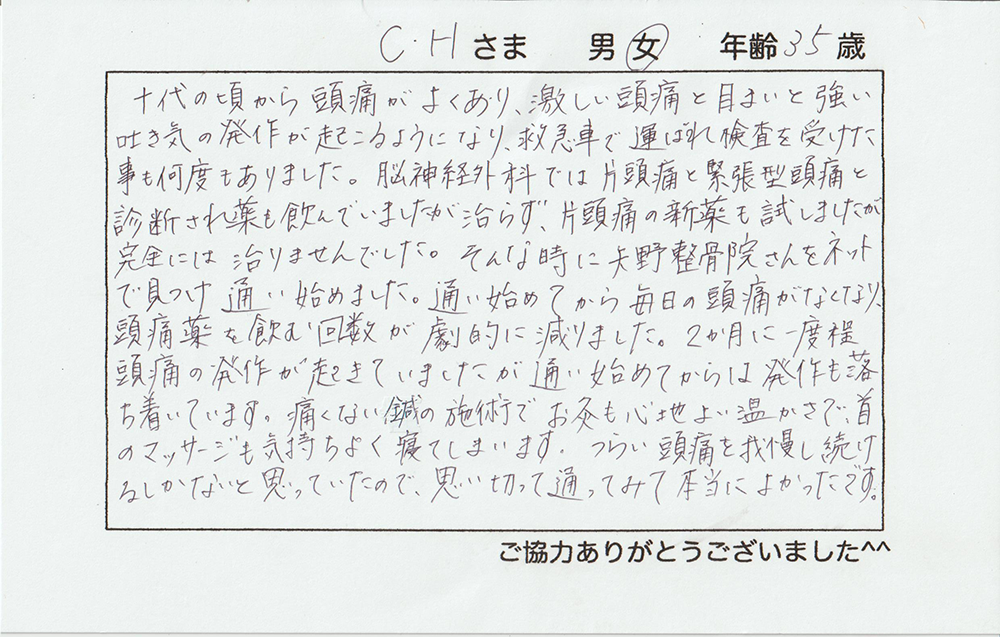 C・Hさま 男 女 年齢35歳
十代の頃から頭痛がよくあり、激しい頭痛と目まいと強い
吐き気の発作が起こるようになり、救急車で運ばれ検査を受けた
事も何度もありました。脳神経外科では片頭痛と緊張型頭痛と
診断され薬も飲んでいましたが治らず、片頭痛の新薬も試しましたが
完全には治りませんでした。そんな時に矢野整骨院さんをネット
で見つけ通い始めました。通い始めてから毎日の頭痛がなくなり、
頭痛薬を飲む回数が劇的に減りました。2か月に一度程
頭痛の発作が起きていましたが通い始めてからは発作も落
ち着いています。痛くない鍼の施術でお灸も心地よい温かさで、首
のマッサージも気持ちよく寝てしまいます。つらい頭痛を我慢し続け
るしかないと思っていたので、思い切って通ってみて本当によかったです。
ご協力ありがとうございました^^